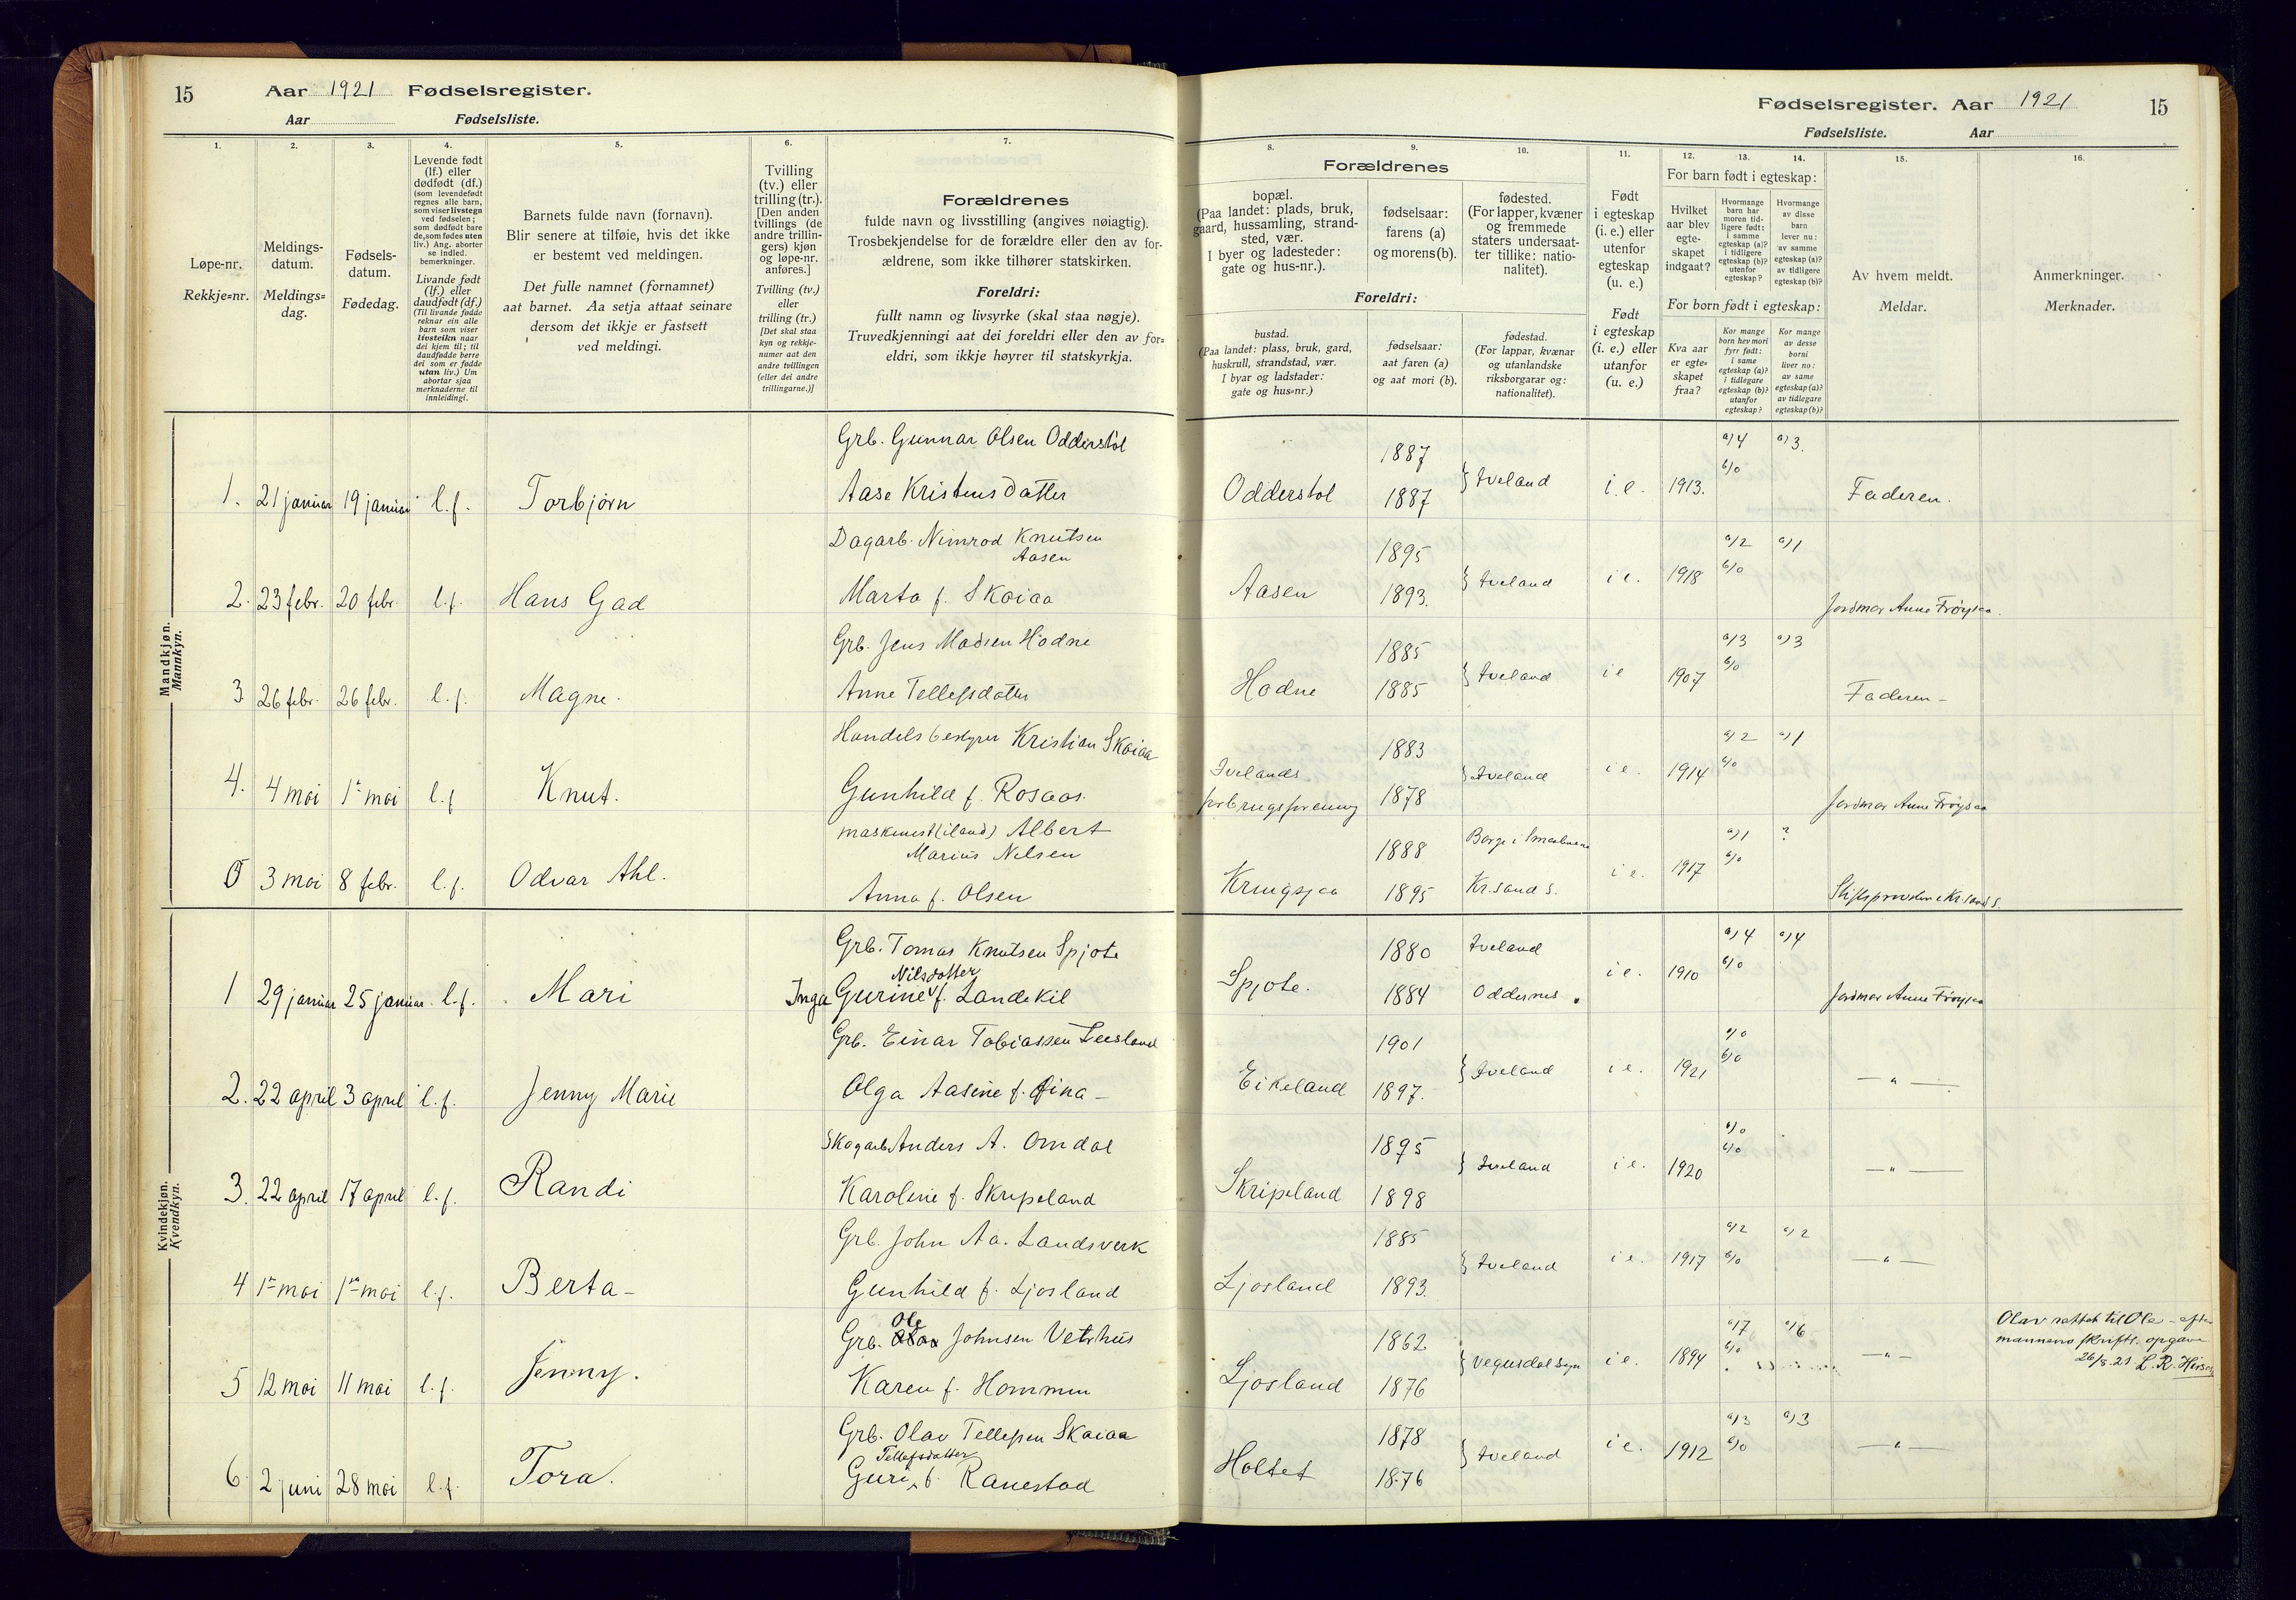 15 Aar 1921 Fødselsregister.
Aar Fødselsliste.
Fødselsregister. Aar 1921 15
Fødselsliste. Aar
1. 2. 3. 4. 5. 6. 7.
Løpe-nr.
Rekkje-nr.
Meldings-
datum.
Meldings-
dag.
Fødsels-
datum.
Fødedag.
Levende født
(lf.) eller
dødfødt (df.)
(som levendefødt
regnes alle barn,
som viser livstegn
ved fødselen;
som dødfødt bare
de, som fødes uten
liv.) Ang. aborter
se indled.
bemerkninger.
Livande født
(lf.) eller
daudfødt (df.)
(Til livande fødde
reknar ein alle
barn som viser
livsteikn naar
dei kjem til; til
daudfødde berre
dei som er fødde
utan liv.) Um
abortar sjaa
merknaderne til
innleidingi.
Barnets fulde navn (fornavn).
Blir senere at tilføie, hvis det ikke
er bestemt ved meldingen.
Det fulle namnet (fornamnet)
aat barnet. Aa setja attaat seinare
dersom det ikkje er fastsett
ved meldingi.
Tvilling
(tv.) eller
trilling (tr.).
[Den anden
tvillings (de
andre trillin-
gers) kjøn
og løpe-nr.
anføres.]
Tvilling (tv.)
eller
trilling (tr.)
[Det skal staa
kyn og rekkje-
numer aat den
andre tvillingen
(eller dei andre
trillingarne.)]
Forældrenes
fulde navn og livsstilling (angives nøiagtig).
Trosbekjendelse for de forældre eller den av for-
ældrene, som ikke tilhører statskirken.
Foreldri:
fullt namn og livsyrke (skal staa nøgje).
Truvedkjenningi aat dei foreldri eller den av for-
eldri, som ikkje høyrer til statskyrkja.
8. 9. 10. 11. 12. 13. 14. 15. 16.
Forældrenes
bopæl.
(Paa landet: plads, bruk,
gaard, hussamling, strand-
sted, vær.
I byer og ladesteder:
gate og hus-nr.).
fødselsaar:
farens (a)
og morens (b).
fødested.
(For lapper, kvæner
og fremmede
staters undersaat-
ter tillike: natio-
nalitet).
Foreldri:
bustad.
(Paa landet: plass, bruk, gard,
huskrull, strandstad, vær.
I byar og ladstader:
gate og hus-nr.)
fødselsaar:
aat faren (a)
og aat mori (b).
fødestad.
(For lappar, kvænar
og utanlandske
riksborgarar og:
nationalitet).
Født
i egteskap
(i. e.) eller
utenfor
egteskap
(u. e.)
Født
i egteskap
(i. e.) eller
utanfor
(u. e.)
For barn født i egteskap:
Hvilket
aar blev
egte-
skapet
indgaat?
Hvormange
barn har
moren tid-
ligere født:
i samme
egteskap (a)?
i tidligere
egteskap (b)?
utenfor
egteskap?
Hvormange
av disse
barn
lever nu:
av samme
egteskap (a)?
av tidligere
egteskap (b)?
For born født i egteskap:
Kva aar
er egte-
skapet
fraa?
Kor mange
born hev mori
fyrr født:
i same
egteskap (a)?
i tidlegare
egteskap (b)?
utanfor
egteskap?
Kor mange
av desse
borni
liver no:
av same
egteskap (a)?
av tidlegare
egteskap (b)?
Av hvem meldt.
Meldar.
Anmerkninger.
Merknader.
Mandkjøn.
Mannkyn.
Grb. Gunnar Olsen Odderstøl 1887 a)4 a)3.
1. 21 januar 19 januar l.f. Torbjørn Aase Kristensdatter Odderstøl 1887 } Iveland i.e. 1913. b)0 Faderen.
Dagarb. Nimrod Knutsen
Aasen 1895 a)2 a)1
2. 23 febr. 20 febr. l.f. Hans Gad Marta f. Skaiaa Aasen 1893. } Iveland i e. 1918 b)0 Jordmor Anne Frøysaa.
Grb. Jens Madsen Hodne 1885 a)3 a)3
3 26 febr. 26 febr. l.f. Magne. Anne Tellefsdatter Hodne 1885 } Iveland i e 1907 b)0 Faderen –
Handelsbestyrer Kristian Skaiaa 1883 a)2 a)1
4. 4 mai 1ste mai l.f Knut. Gunhild f. Rosaas. Ivelands forbrugsforening 1878 } Iveland i e. 1914 b)0 Jordmor Anne Frøysaa
maskinist (iland) Albert
Marius Nilsen 1888 Borge i Smaalenene a)1 ?
5 3 mai 8 febr. l.f. Odvar Ahl. Anna f. Olsen Kringsjaa 1895 Kr.sand S. i e. 1917 b)0 Stiftsprovsten i Kr.sand S.
Kvindekjøn.
Kvendkyn.
Grb. Tomas Knutsen Spjote 1880 Iveland a)4 a)4
Nilsdatter
1 29 januar 25 januar l.f. Mari Inga Gurine f. Landekil Spjote. 1884 Oddernes. i e. 1910 b)0 Jordmor Anne Frøysaa
Grb. Einar Tobiassen Leesland 1901 a)0
2. 22 april 3 april l.f. Jenny Marie Olga Aasine f. Fina – Eikeland 1897. } Iveland i e. 1921 b)0 — " —
Skogarb. Anders A. Omdal 1895 a)0
3. 22 april 17 april l.f. Randi Karoline f. Skripeland Skripeland 1898 } Iveland i e. 1920 b)0 — " —
Grb. John Aa. Landsverk 1885 a)2 a)2
4 1ste mai 1ste mai l.f. Berta – Gunhild f. Ljosland Ljosland 1893. } Iveland i e. 1917 b)0 — " —
Ole
Grb. Olav Johnsen Vetrhus 1862 a)7 a)6 Olav rettet til Ole – efter
mannens skriftl. opgave
26/8.21 L. R. Hirsch
5 12 mai 11 mai l.f. Jenny. Karen f. Hommen Ljosland 1876 } Vegusdal sogn i e. 1894 b)0 — " —
Grb. Olav Tellefsen Skaiaa 1878 a)3 a)3
Tellefsdatter
6 2 juni 28 mai l.f. Tora. Guri f. Ranestad Holtet 1876 } Iveland i e. 1912 b)0 — " —